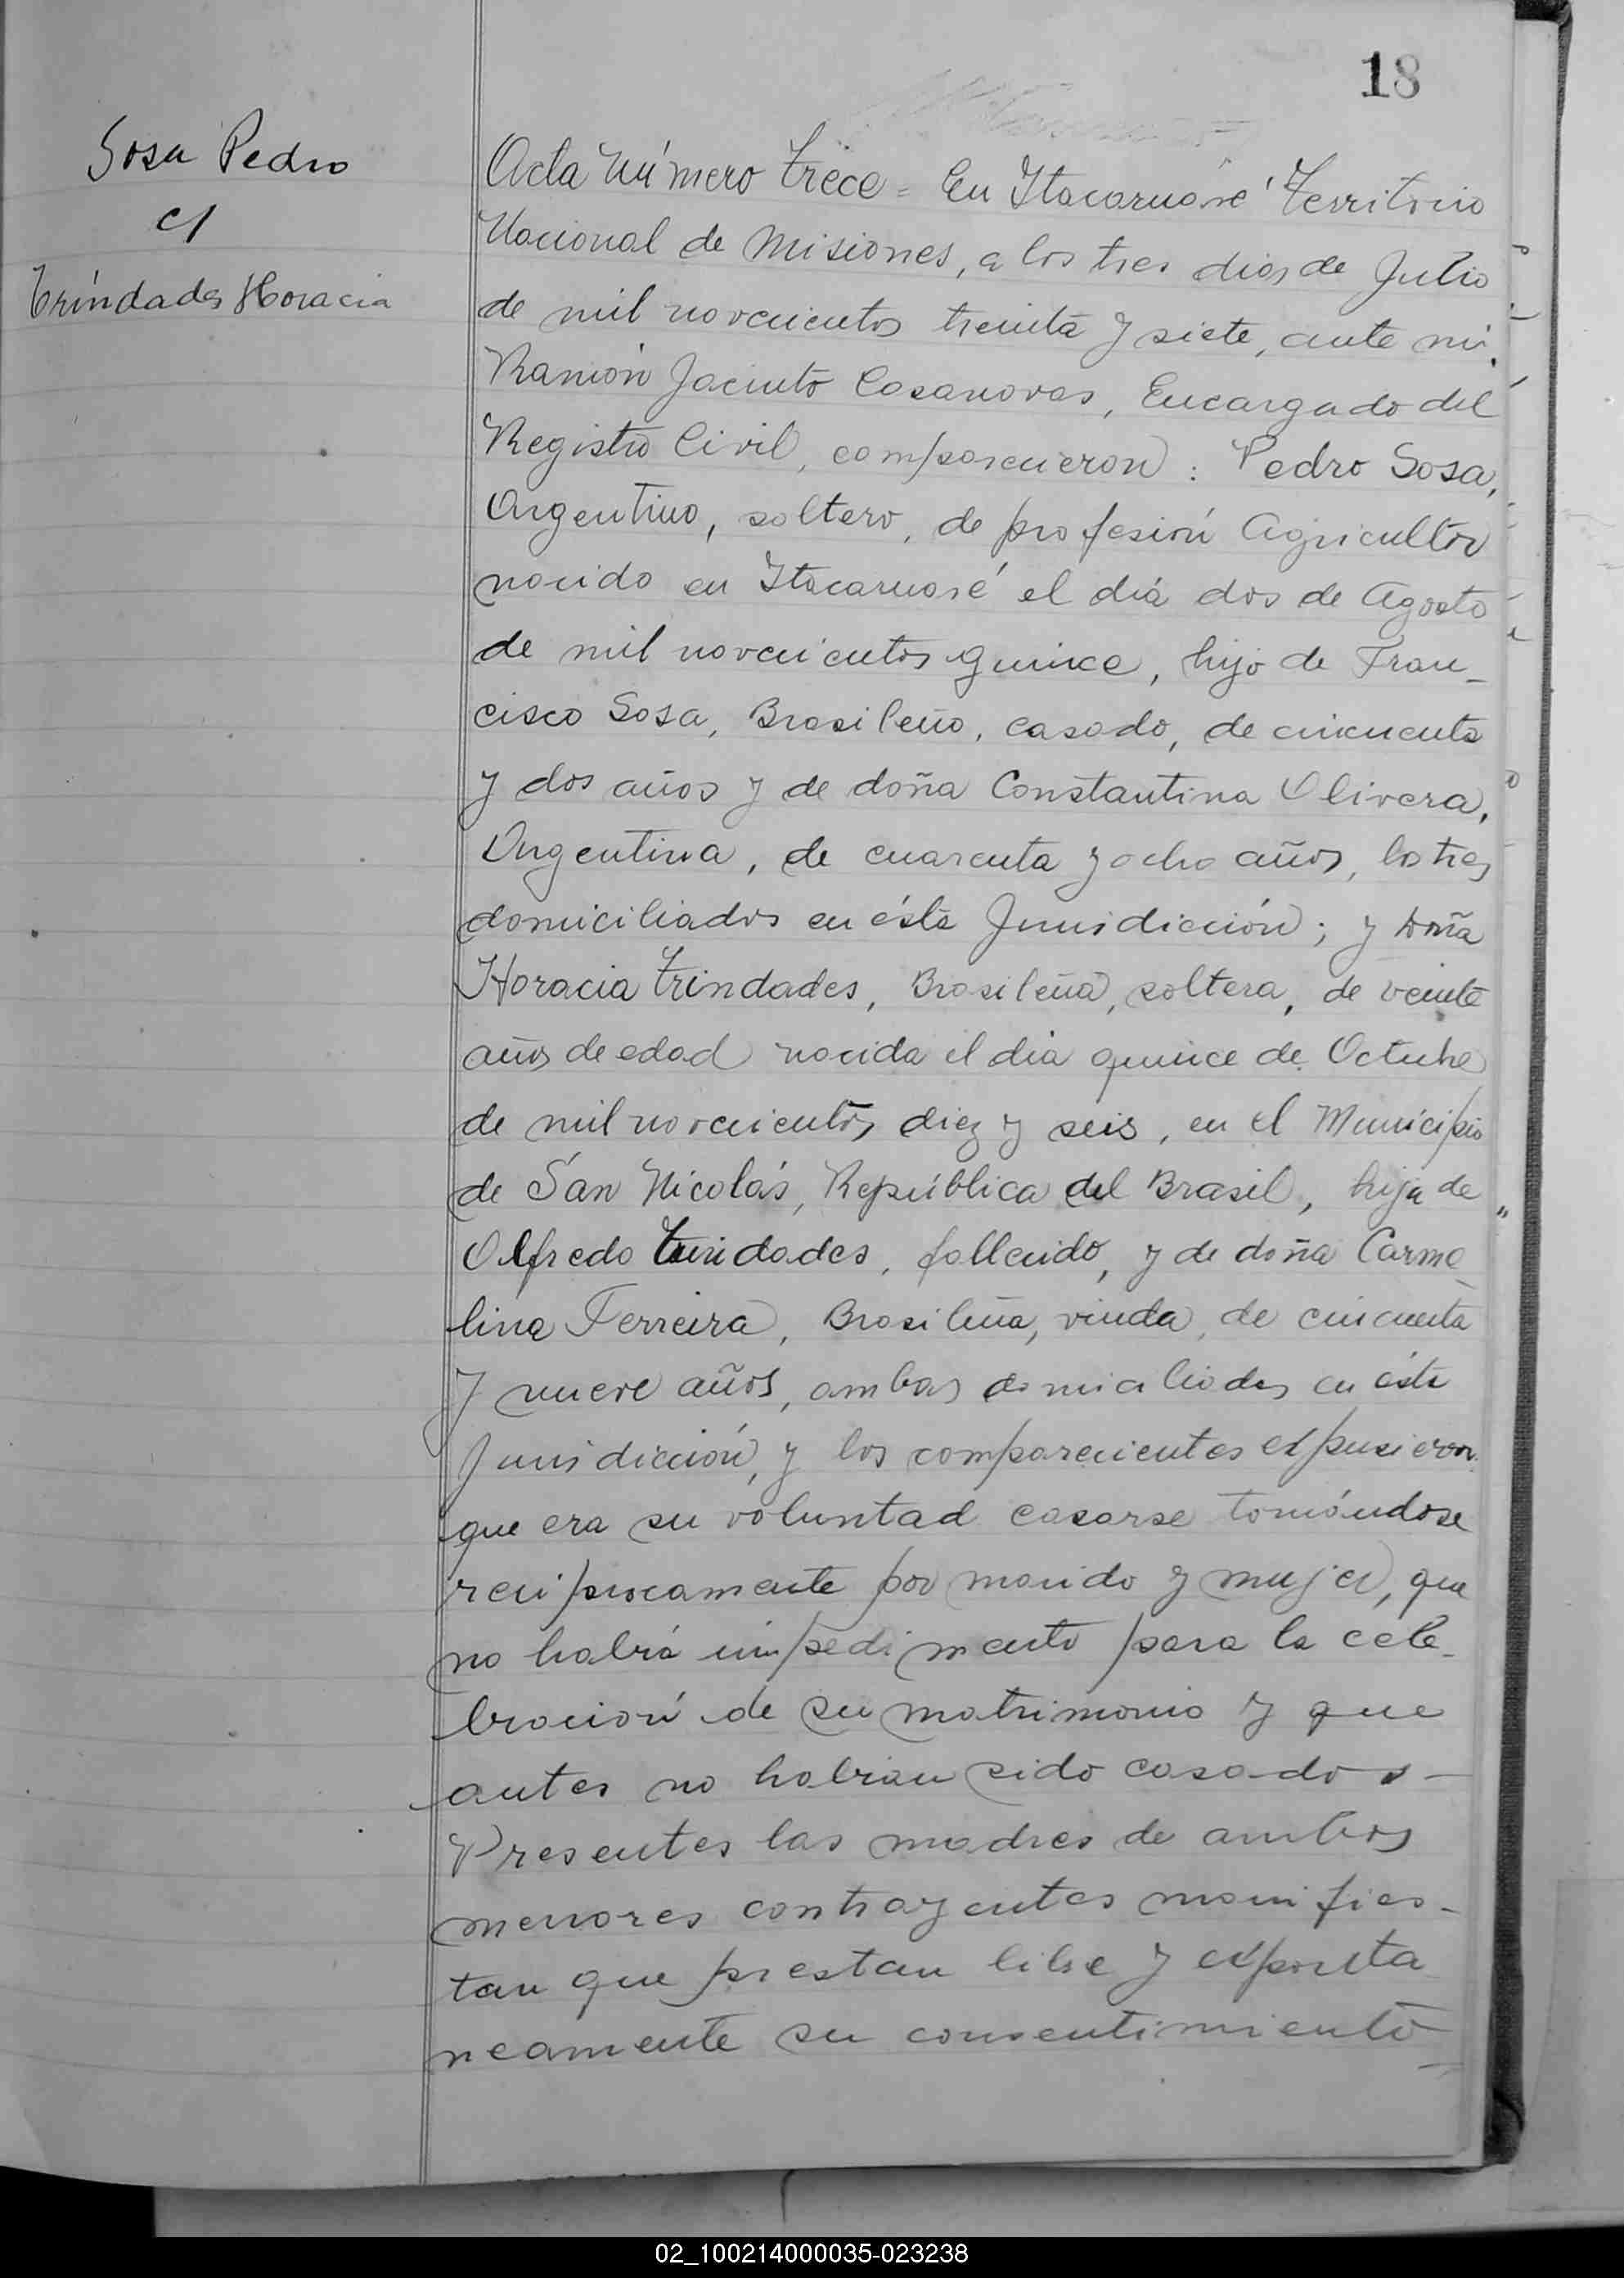 18
Sosa Pedro
c/
Trindades Horacia
Acta Número Trece = En Itacaruaré Territorio
Nacional de Misiones, a los tres dias de Julio
de mil novecientos treinta y siete, ante mi,
Ramón Jacinto Casanovas, Encargado del
Registro Civil, comparecieron: Pedro Sosa,
Argentino, soltero, de profesión Agricultor
nacido en Itacaruaré el día dos de Agosto
de mil novecientos quince, hijo de Fran-
cisco Sosa, Brasileño, casado, de cincuenta
y dos años y de doña Constantina Olivera,
Argentina, de cuarenta y ocho años, los tres
domiciliados en ésta Jurisdicción; y doña
Horacia Trindades, Brasileña, soltera, de veinte
años de edad nacida el dia quince de Octubre
de mil novecientos diez y seis, en el Municipio
de San Nicolás, República del Brasil, hija de
Alfredo Trindades, fallecido, y de doña Carme-
lina Ferreira, Brasileña, viuda, de cincuenta
y nueve años, ambas domiciliadas en ésta
Jurisdicción, y los comparecientes expusieron
que era su voluntad casarse tomándose
reciprocamente por marido y mujer, que
no había impedimento para la cele-
bración de su matrimonio y que
antes no habian sido casados -
Presentes las madres de ambos
menores contrayentes manifies-
tan que prestan libre y esponta
neamente su consentimiento -
02_100214000035-023238